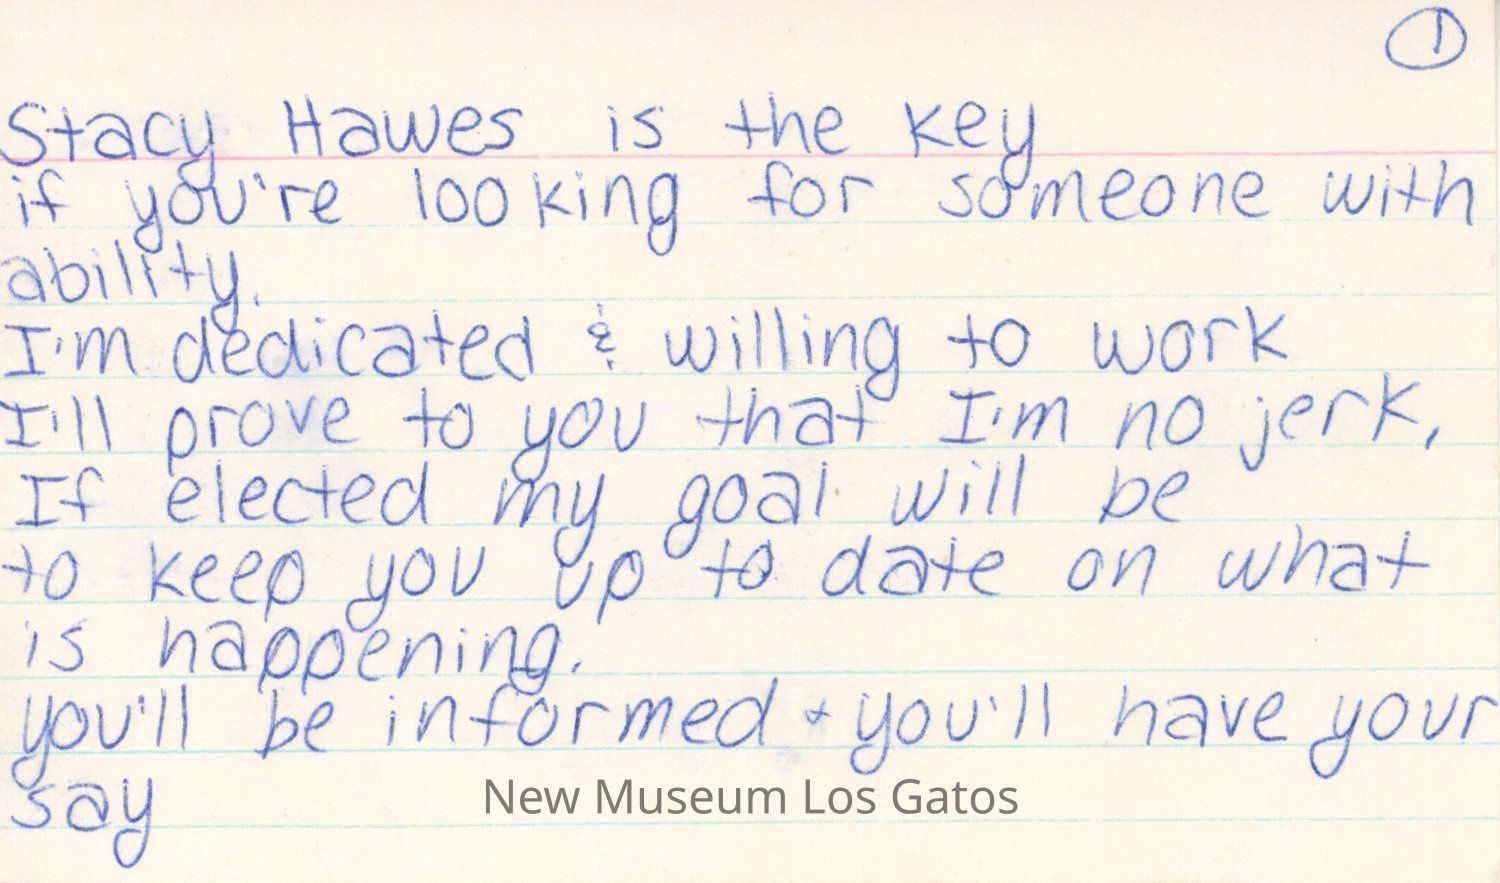 1
Stacy Hawes is the key
if you're looking for someone with
ability.
I'm dedicated & willing to work
I'll prove to you that I'm no jerk,
If elected my goal will be
to keep you up to date on what
is happening.
you'll be informed & you'll have your
say
New Museum Los Gatos